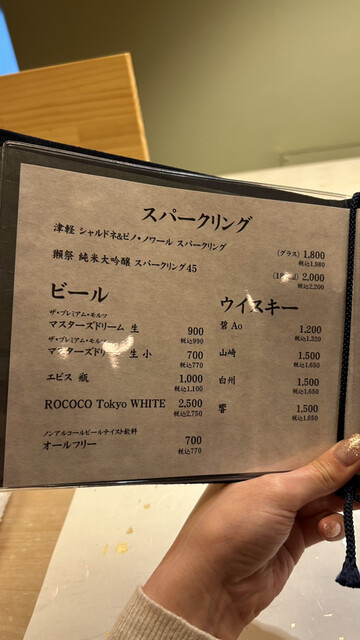 スパークリング
津軽 シャルドネ&ピノ・ノワール スパークリング (グラス) 1,800
税込1,980
獺祭 純米大吟醸 スパークリング45 2,000
税込2,200
ビール
ザ・プレミアム・モルツ
マスターズドリーム 生 900
税込990
ザ・プレミアム・モルツ
マスターズドリーム 生 小 700
税込770
ヱビス 瓶 1,000
税込1,100
ROCOCO Tokyo WHITE 2,500
税込2,750
ノンアルコールビールテイスト飲料
オールフリー 700
税込770
ウイスキー
碧Ao 1,200
税込1,320
山崎 1,500
税込1,650
白州 1,500
税込1,650
響 1,500
税込1,650